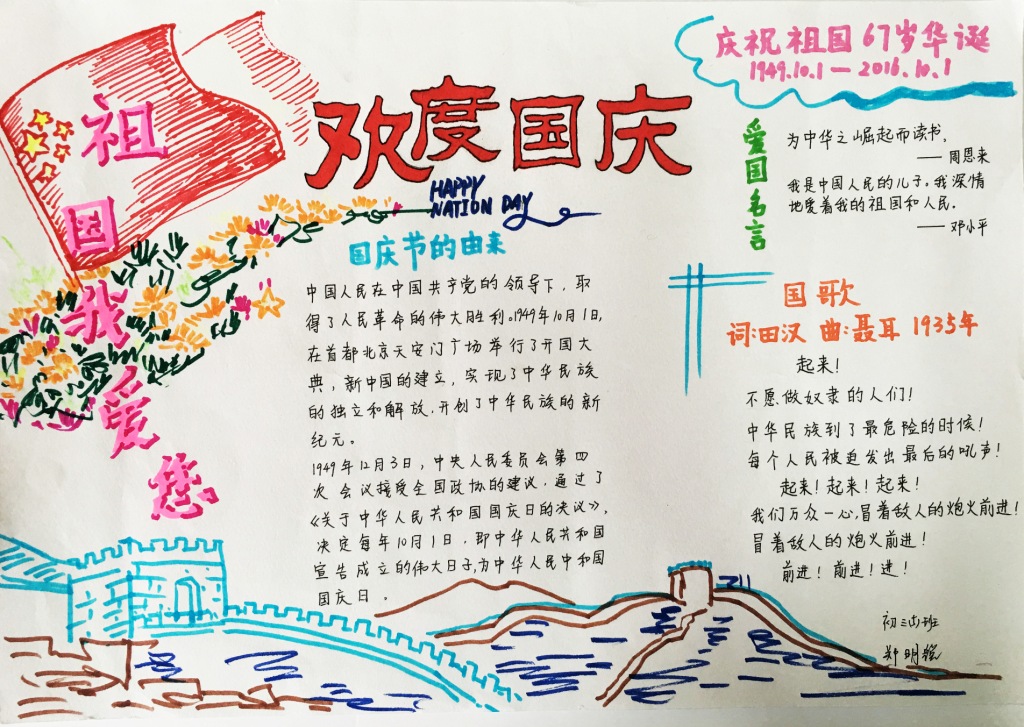 祖国我爱您
欢度国庆
HAPPY
NATION DAY
国庆节的由来
中国人民在中国共产党的领导下，取
得了人民革命的伟大胜利。1949年10月1日，
在首都北京天安门广场举行了开国大
典，新中国的建立，实现了中华民族
的独立和解放，开创了中华民族的新
纪元。
1949年12月3日，中央人民委员会第四
次会议接受全国政协的建议，通过了
《关于中华人民共和国国庆日的决议》，
决定每年10月1日，即中华人民共和国
宣告成立的伟大日子，为中华人民中和国
国庆日。
庆祝祖国67岁华诞
1949.10.1—2016.10.1
爱国名言
为中华之崛起而读书，
——周恩来
我是中国人民的儿子。我深情
地爱着我的祖国和人民。
——邓小平
国歌
词:田汉 曲:聂耳 1935年
起来！
不愿做奴隶的人们！
中华民族到了最危险的时候！
每个人民被迫发出最后的吼声！
起来！起来！起来！
我们万众一心，冒着敌人的炮火前进！
冒着敌人的炮火前进！
前进！前进！进！
初三班
郑明